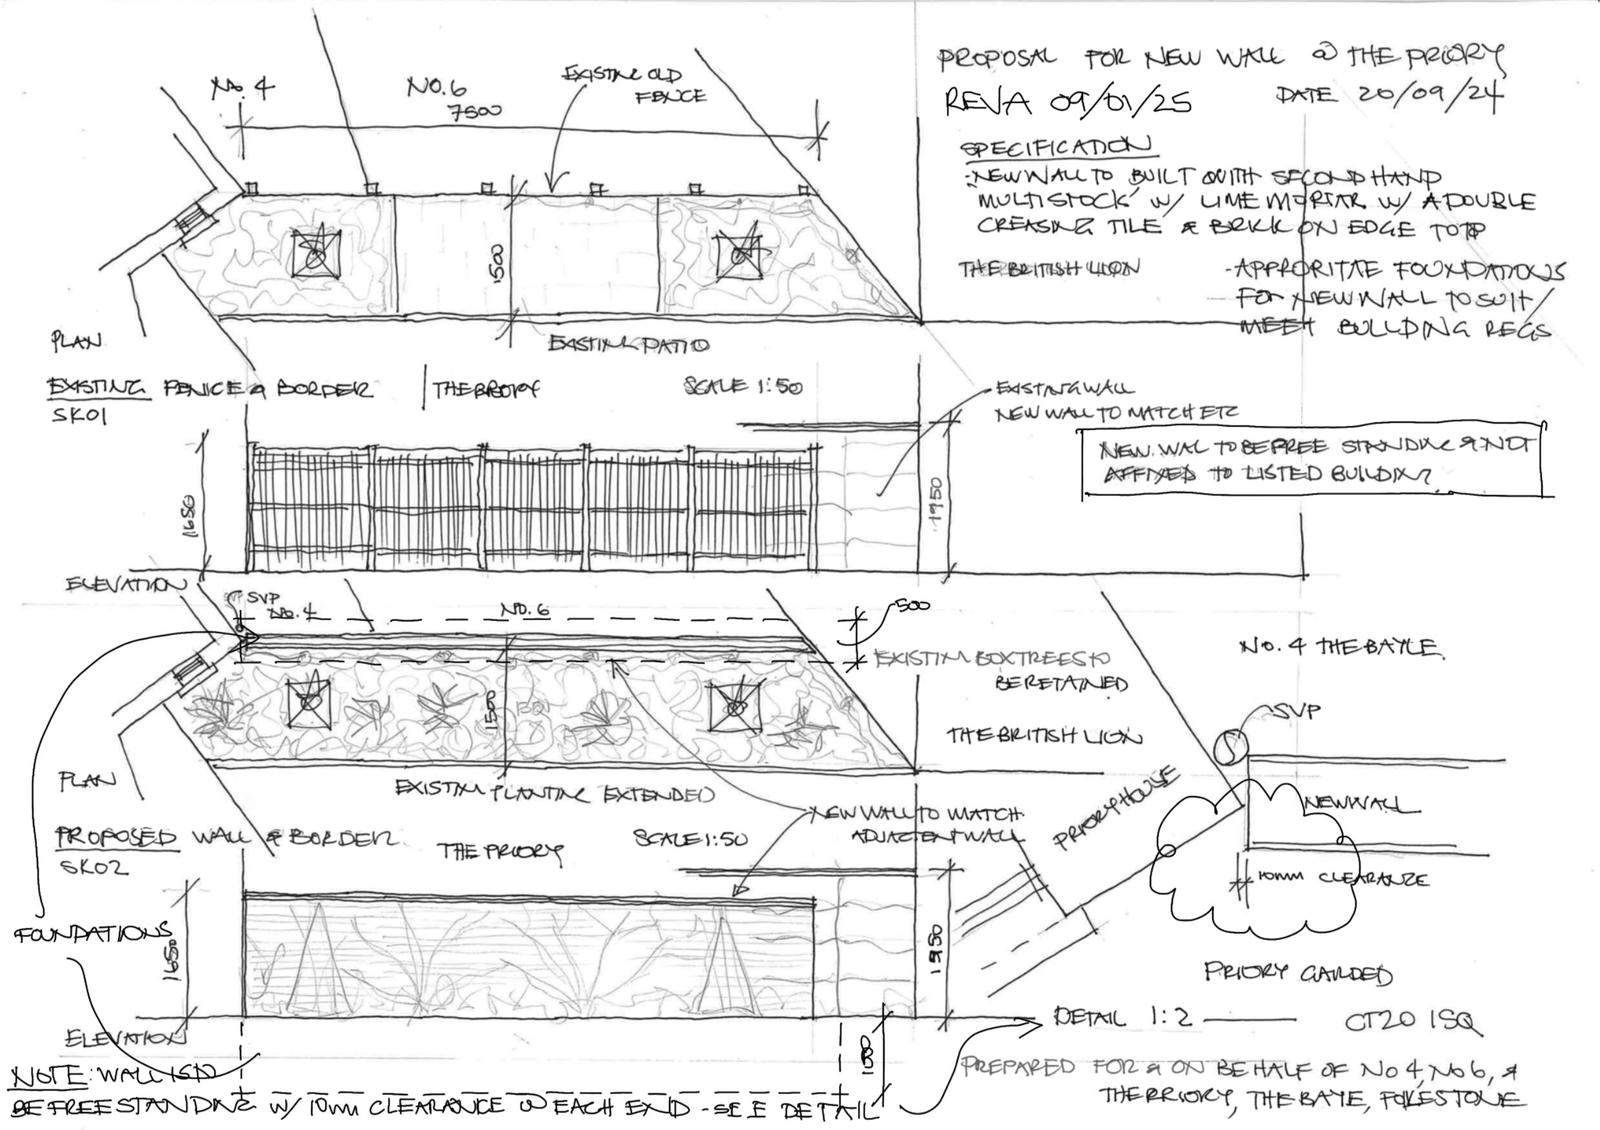 PROPOSAL FOR NEW WALL @ THE PRIORY
REVA 09/01/25
DATE 20/09/24
SPECIFICATION
-NEW WALL TO BUILT WITH SECOND HAND
MULTISTOCK W/ LIME MORTAR W/ A DOUBLE
CREASING TILE & BRICK ON EDGE TO TOP
THE BRITISH LION
-APPRORITAE FOUNDATIONS
FOR NEW WALL TO SUIT/
MEET BUILDING REGS
No. 4
NO.6
7500
EXISTING OLD
FENCE
1500
PLAN
EXISTING PATIO
EXISTING FENCE & BORDER
THE PRIORY
SCALE 1:50
SK01
EXISTING WALL
NEW WALL TO MATCH ETC
NEW WAL TO BE FREE STANDING & NOT
AFFIXED TO LISTED BUILDING.
1650
1950
ELEVATION
SVP
No. 4
NO. 6
500
EXISTING BOX TREES TO
BE RETAINED
No. 4 THE BAYLE.
1500
THE BRITISH LION
SVP
PLAN
EXISTING PLANTING EXTENDED
PRIORY HOUSE
NEW WALL
NEW WALL TO MATCH
ADJACENT WALL
PROPOSED WALL & BORDER.
THE PRIORY
SCALE 1:50
SK02
10mm CLEARANZE
FOUNDATIONS
1650
1950
PRIORY GARDED
DETAIL 1:2
CT20 1SQ
ELEVATION
1000
NOTE: WALL IS TO
BE FREESTANDING W/ 10mm CLEARANCE @ EACH END - SEE DETAIL
PREPARED FOR & ON BEHALF OF No 4, No 6, &
THE PRIORY, THE BAYE, FOLKESTONE